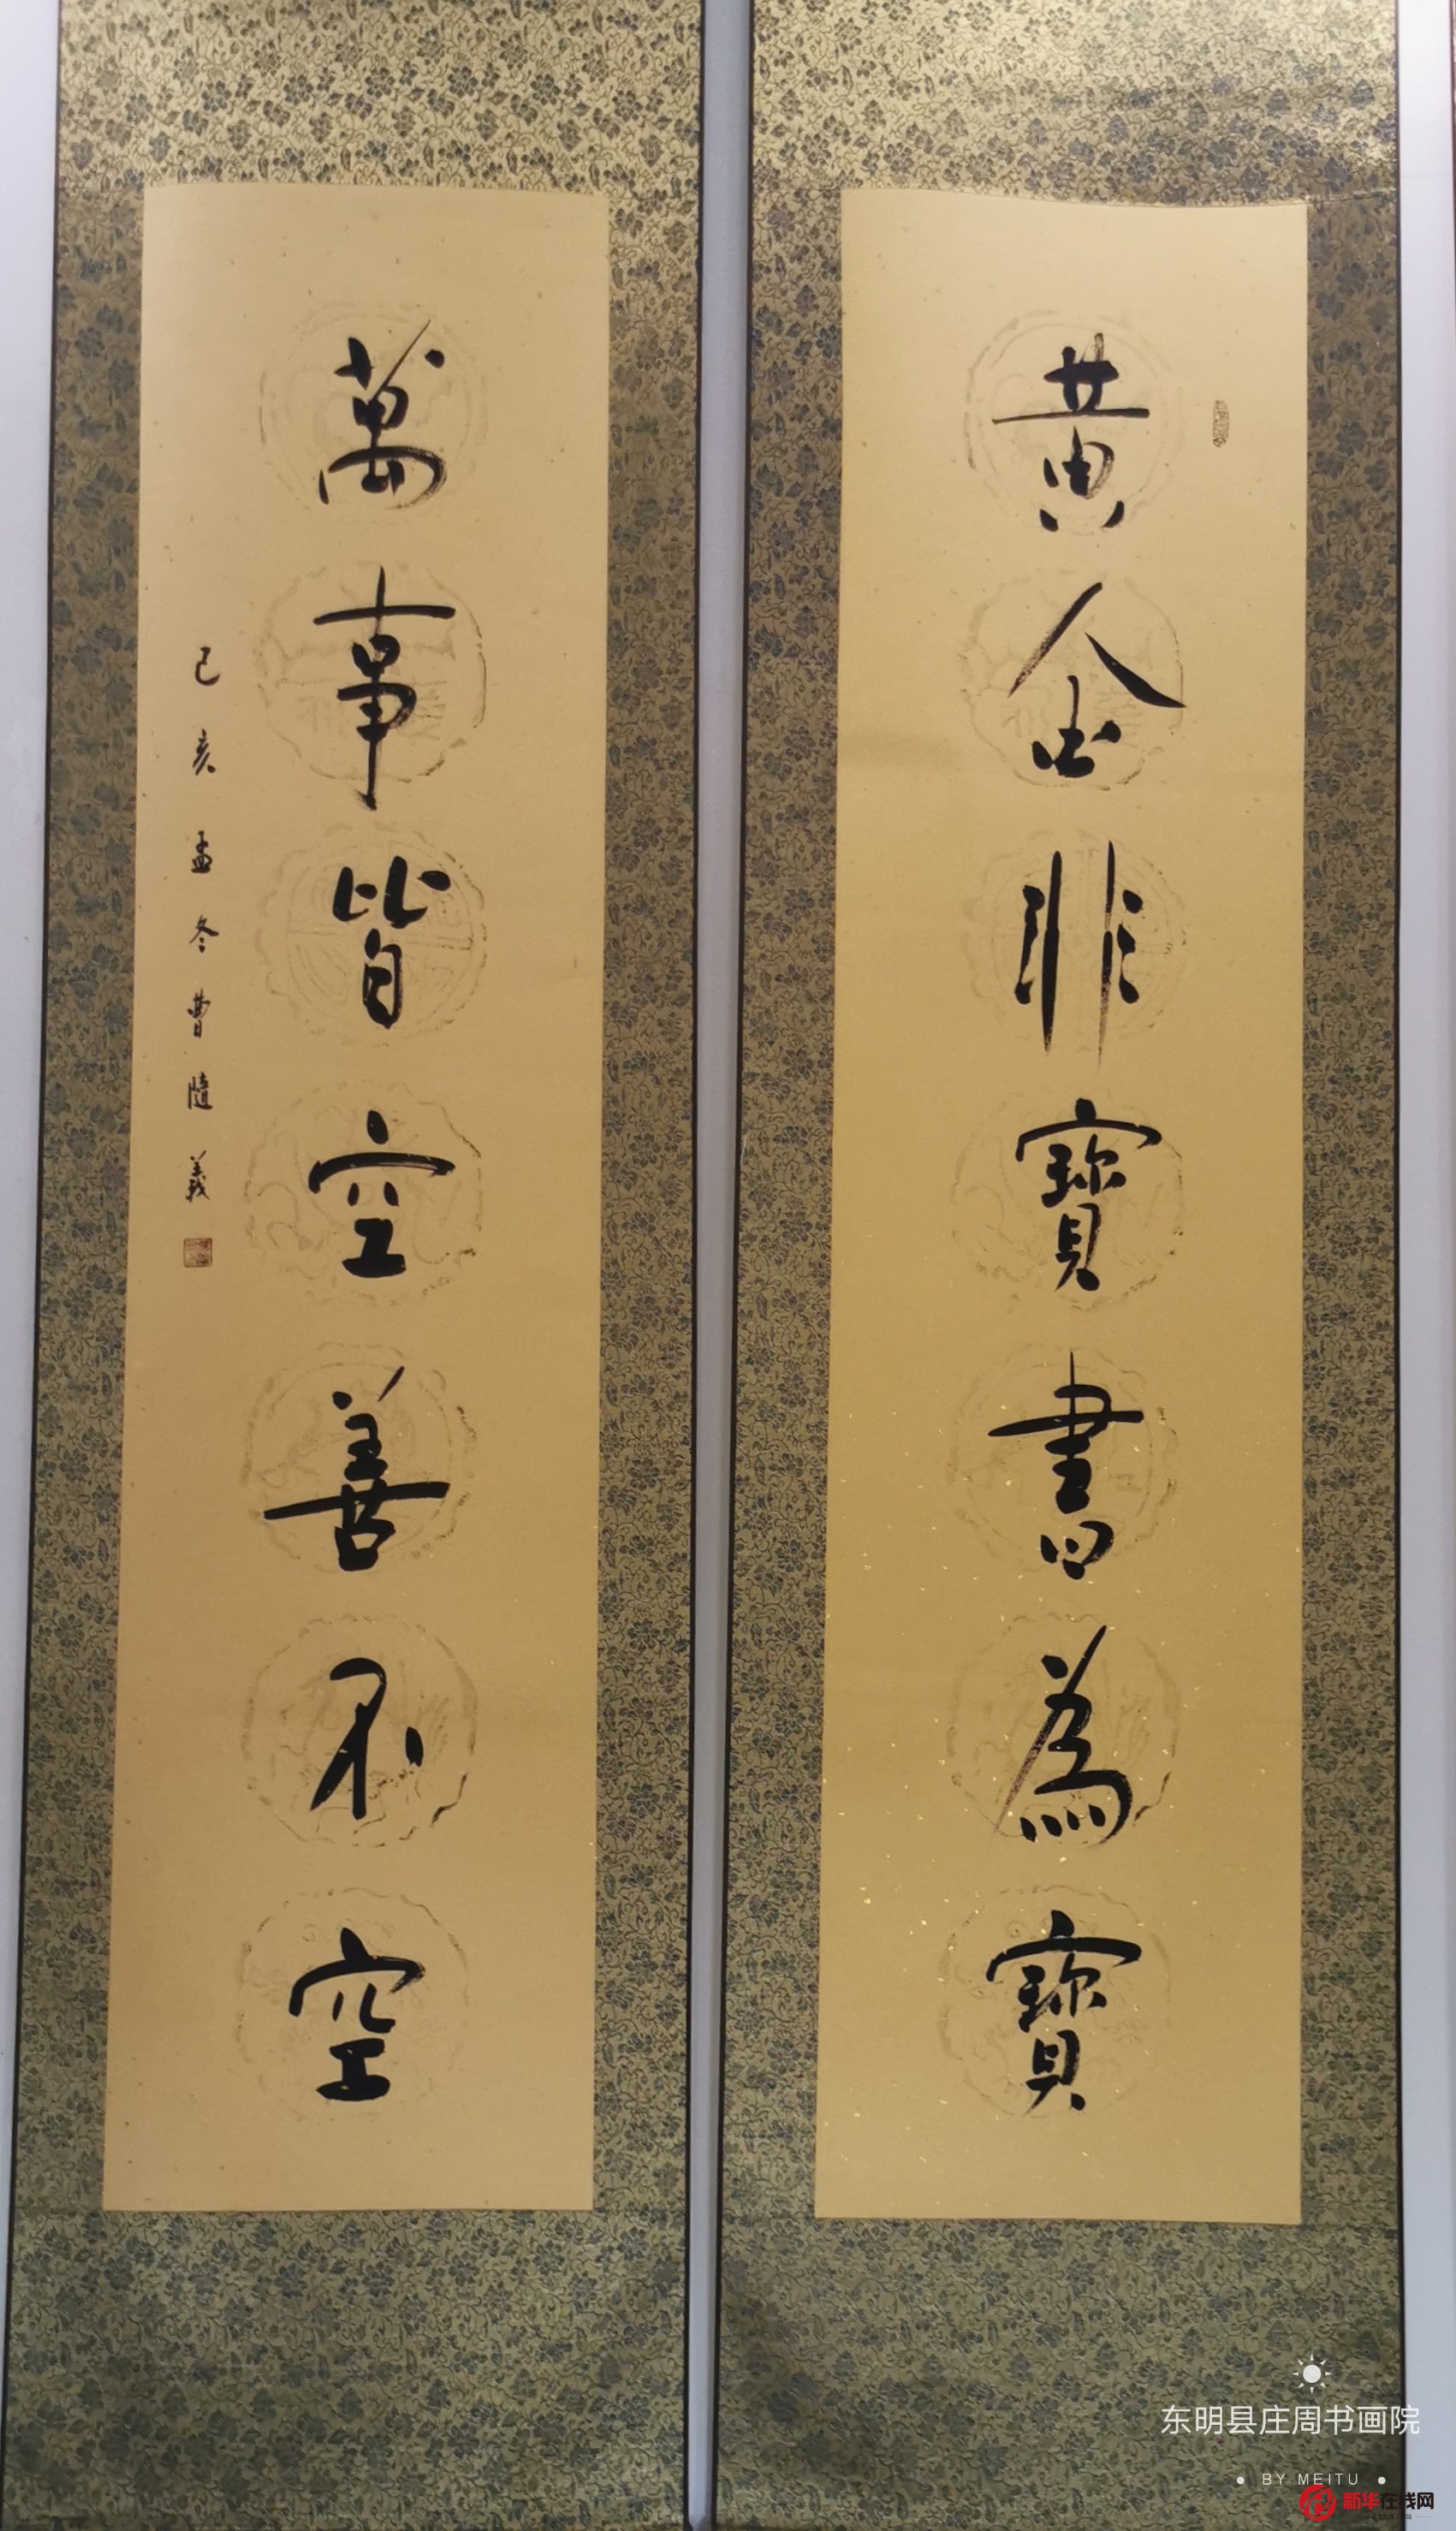 黄金非寶書為寶
萬事皆空善不空
己亥孟冬曹隨義
东明县庄周书画院
BY MEITU
新华在线网